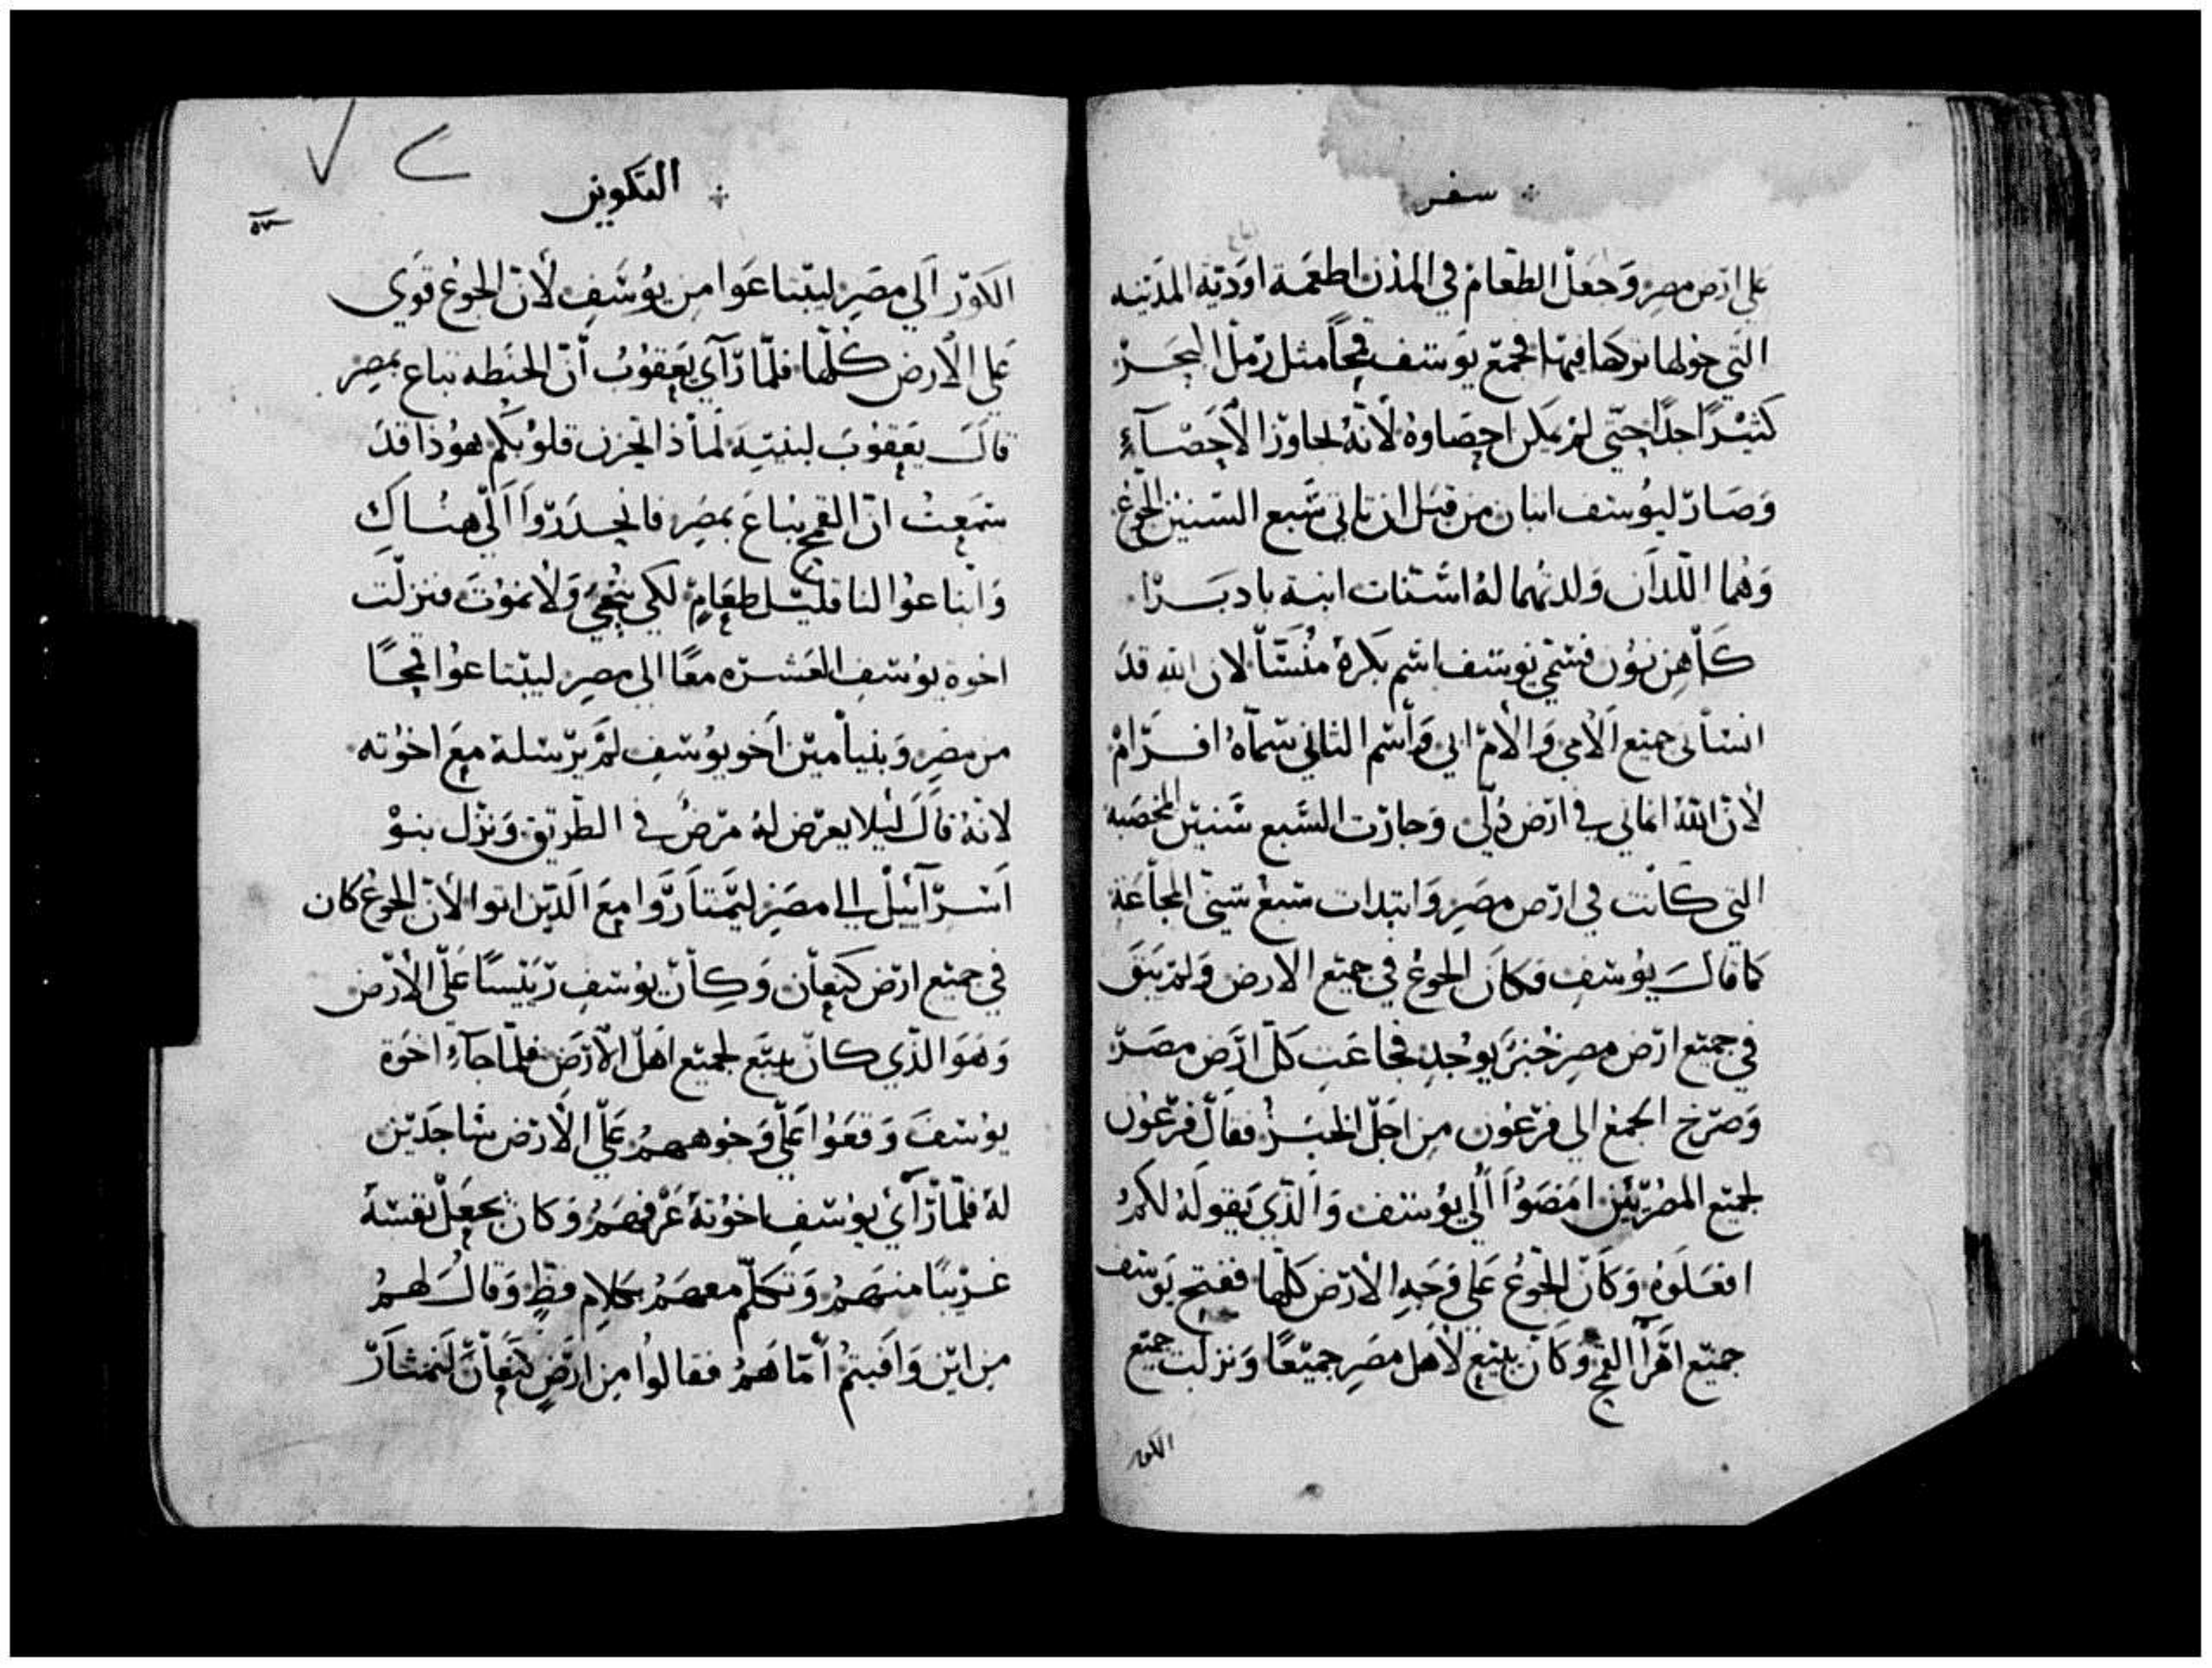 سفر
على ارض مصر وَجَعَل الطعَام في المدن اطعمة اودية المدينه
التي حولها تركها فيها فجمَع يوسف قمحًا مثل رمل البحَر
كثيرًا جدًا حتّى لم يمكن احصَاوهُ لانّهُ تجاوز الاحصَآء
وَصَار ليوُسف ابنان من قبل ان تاتي سَبع السّنين الجوع
وَهُما اللّذان وَلدتهُما لهُ اسنات ابنة بادبرا
كَاهِن نوُن فسَمّي يوسف اسم بكرهُ منَسّا لان الله قد
انسَاني جميع الامي والام ابي وَاسم الثاني سَمّآهُ افرَام
لأنّ اللهُ انماني في ارض ذلي وَجازت السّبع سَنين المخصَبة
التي كَانت في ارض مصِر وَابتدات سَبعُ سَني المجاعَة
كما قالَ يوُسف فكانَ الجوُع في جميع الارض وَلم يَبَق
في جميع ارض مصِر خبز يوُجد فجاعَت كل ارَض مصَر
وَصَرخ الجمع الى فرعوُن من اجل الخبز فقال فرعوُن
لجميع المصُريّين امضوُا الي يوُسف وَالذي يَقوله لكمُ
افعَلوهُ وَكانَ الجوُع عَلى وَجهِ الارض كلها ففتح يوَسف
جميع اهرآ القمح وَكان يبيع لأهل مصَر جميعًا وَنزلت جميع
الكور
التكوين
الكوَر الي مصَر ليبتاعَوا من يوُسَف لأن الجوع قوَي
عَلى الأرض كُلها فلمّا رآي يَعقوُب أن الحنَطه تباع بمصِر
قالَ يَعقوُبَ لبنيَه لماذا تحزن قلوُبكم هوُذا قدَ
سَمَعتُ انّ القمح يباعَ بمصَر فانحدَرَوا الي هنَاكَ
وَابتاعوُا لنا قليل طعَامٍ لكي نُحييَ وَلا نموُت فنزلت
اخوة يوُسف العَشره معًا الى مصِر ليبتاعوُا قمحًا
من مصِر وَبنيامين اخو يوُسفِ لم يرُسلهُ معَ اخوُته
لانهُ قالَ ليلا يعرض لهُ مرَضُ في الطّريق وَنزل بنوُ
اسَرآئيل الي مصَر ليَمتاروَا معَ الذين اتوا لأن الجوُع كان
في جميع ارض كنعَان وَكان يوُسف رَئيسًا عَلى الأرض
وَهوَ الذي كانَ يبيَع لجميع اهَل الأرَض فلما جآء اخوَة
يوُسفَ وَقعَوُا عَلي وَجوههمُ عَلي الأرض سَاجدَين
لهُ فلمّا رَآي يوُسف اخوُتهُ عَرفهمُ وَكان يجعَل نفسَهُ
غريبًا منهمُ وَتكَلّم معهمُ بكلام فظٍ وَقالَ لهمُ
من اين وَافيتمُ أمّا همُ فقالوُا من ارضٍ كنعَان لنمتَار